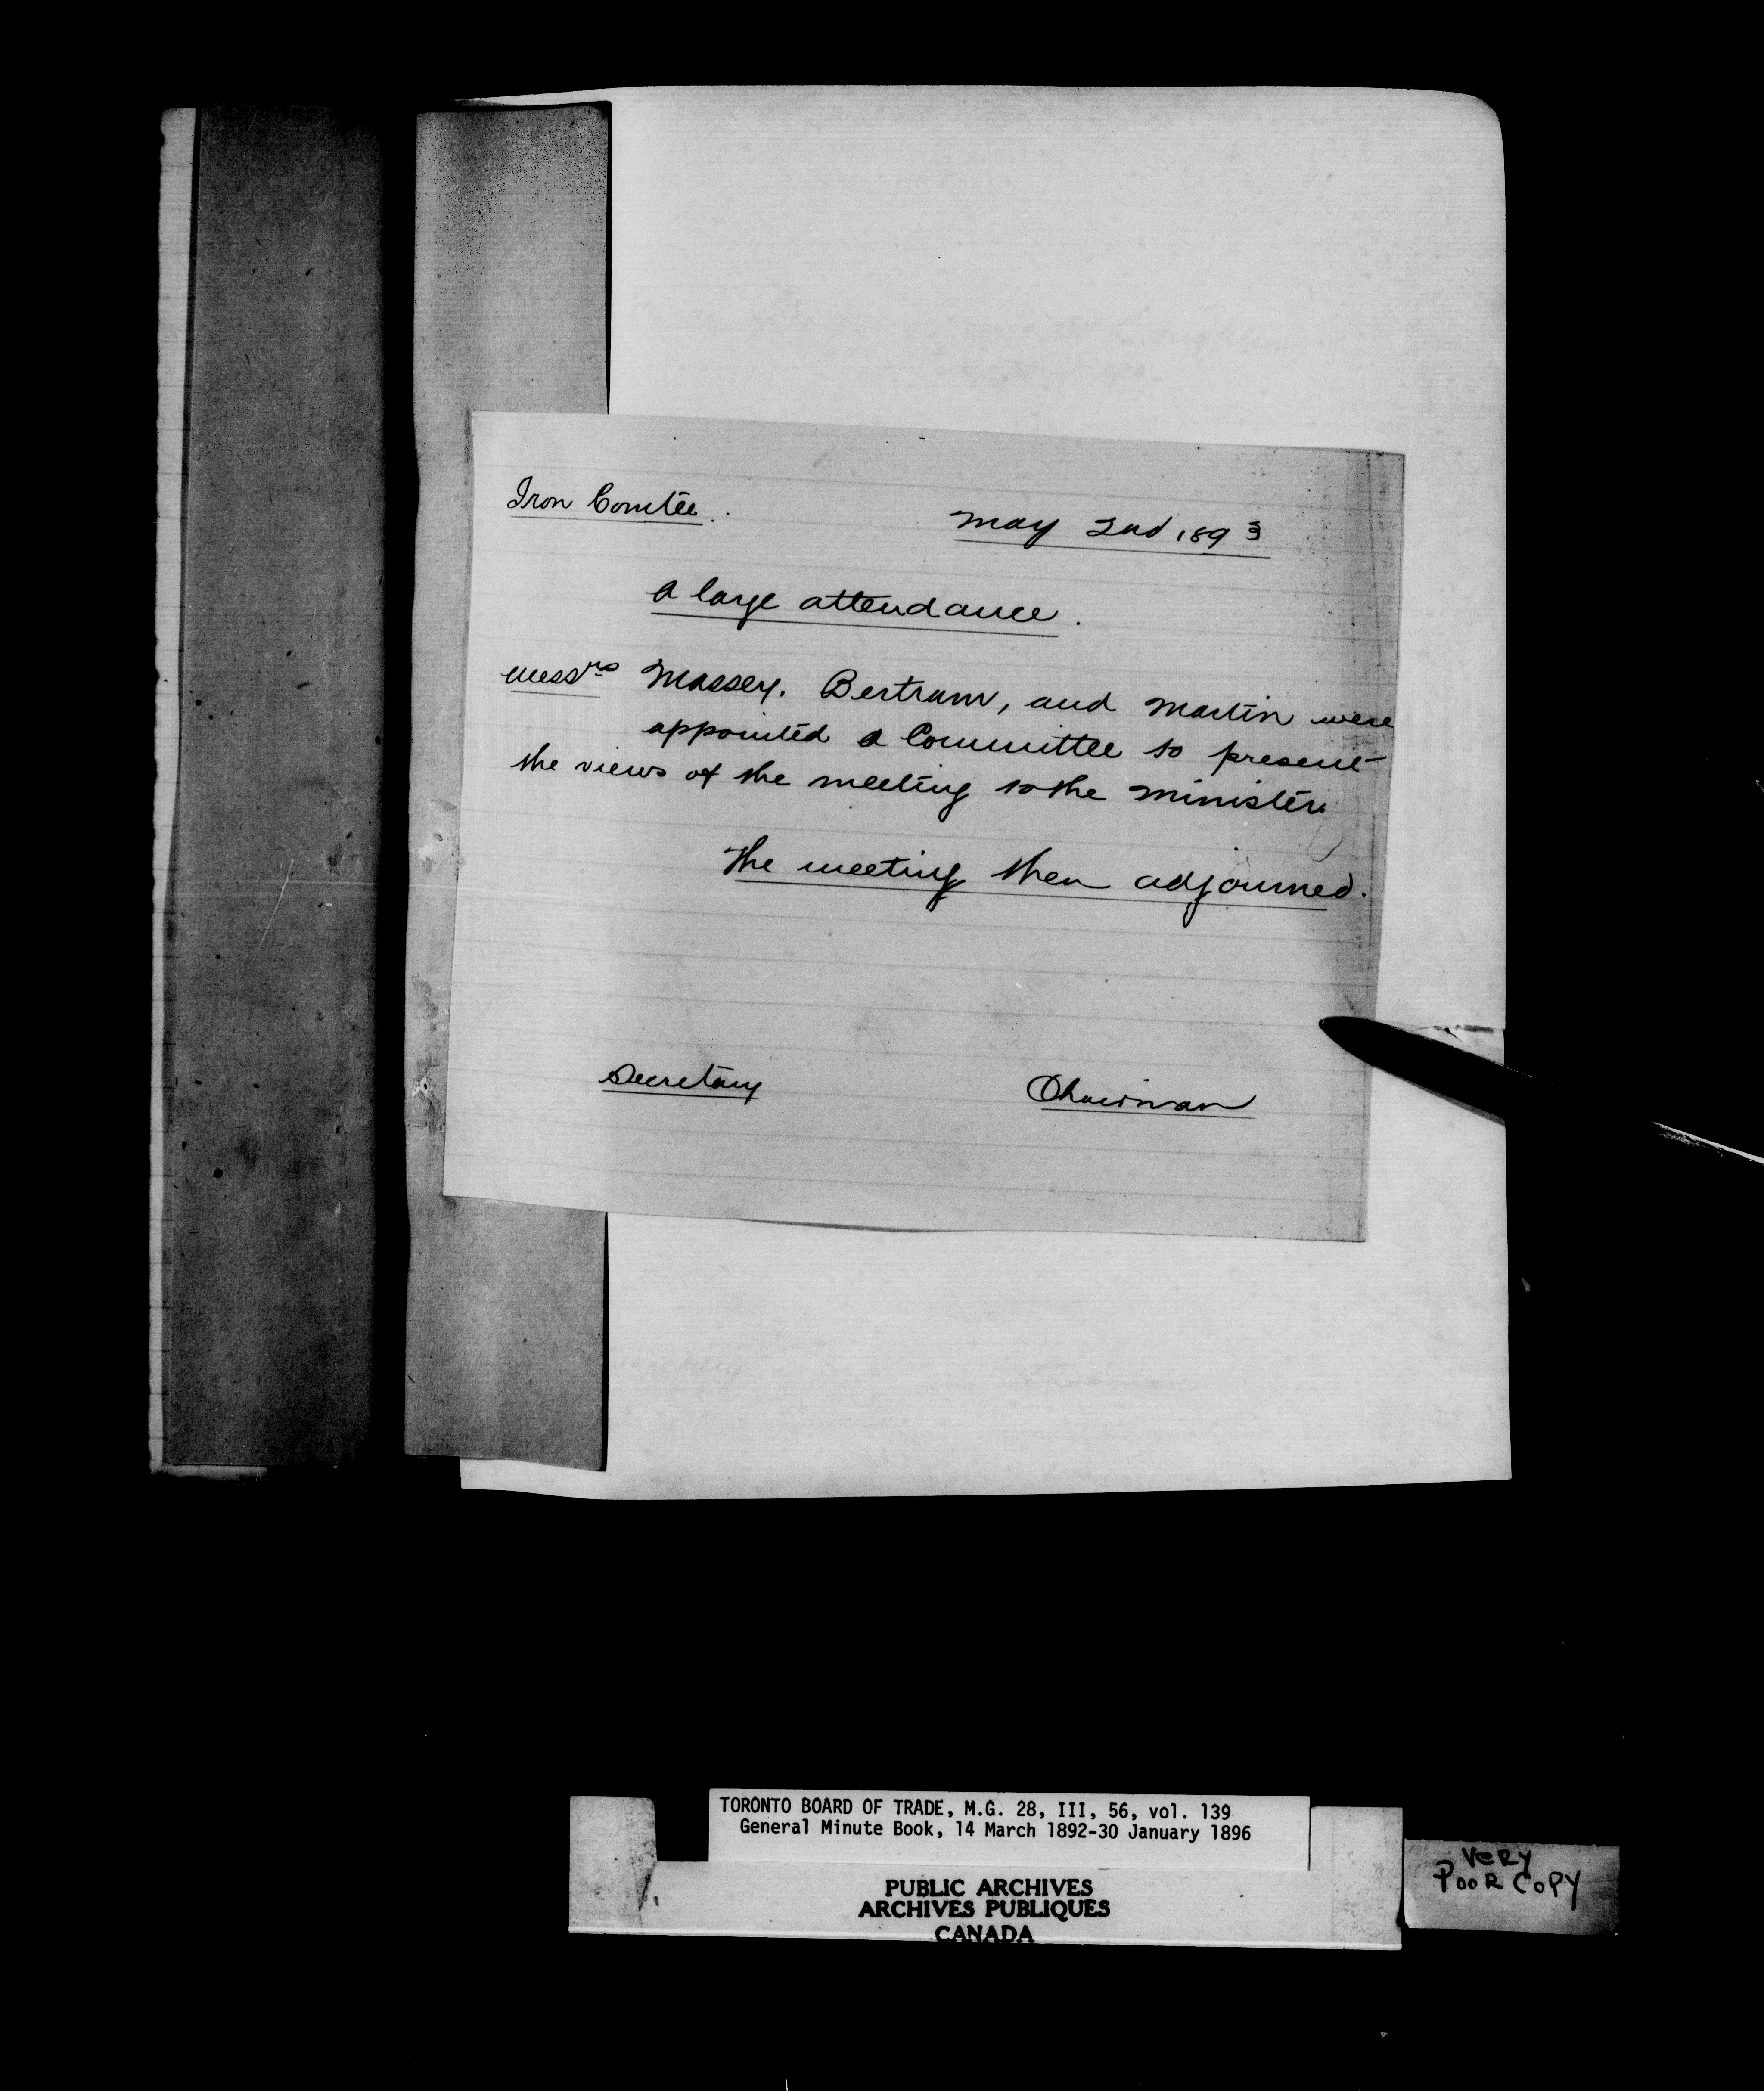 Iron Comtee.
May 2nd 1893
A large attendance.
Messrs Massey. Bertram, and Martin were
appointed a Committee to present
the views of the meeting to the Minister.
The meeting then adjourned.
Secretary
Chairman
TORONTO BOARD OF TRADE, M.G. 28, III, 56, vol. 139
General Minute Book, 14 March 1892-30 January 1896
PUBLIC ARCHIVES
ARCHIVES PUBLIQUES
CANADA
VERY
POOR COPY